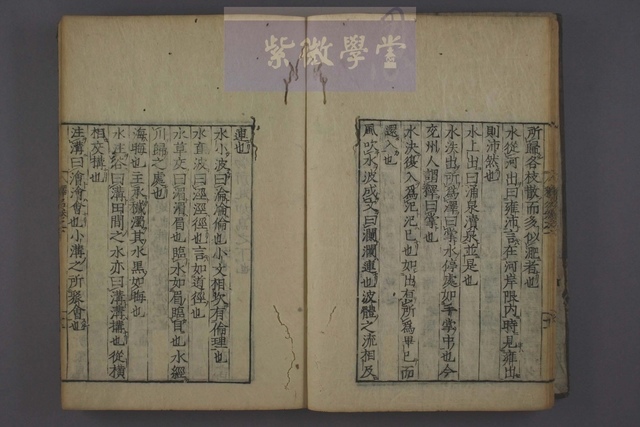 紫微學堂
所歸各枝散而多似迤者也
水從河出曰雍沛言在河岸限內時見雍出
則沛然也
水上出曰涌泉瀆泉並是也
水泆出所爲澤曰掌水停處如手掌中也今
兗州人謂澤曰掌也
水決復入爲汜汜已也如出有所爲畢已而
還入也
風吹水波成文曰瀾瀾連也波體之流相及
連也
水小波曰淪淪倫也小文相次有倫理也
水直波曰涇涇徑也言如道徑也
水草交曰湄湄眉也臨水如眉臨目也水經
川歸之處也
海晦也主承穢濁其水黑如晦也
水注谷曰溝田間之水亦曰溝溝搆也從橫
相交搆也
注溝曰澮澮會也小溝之所聚會也